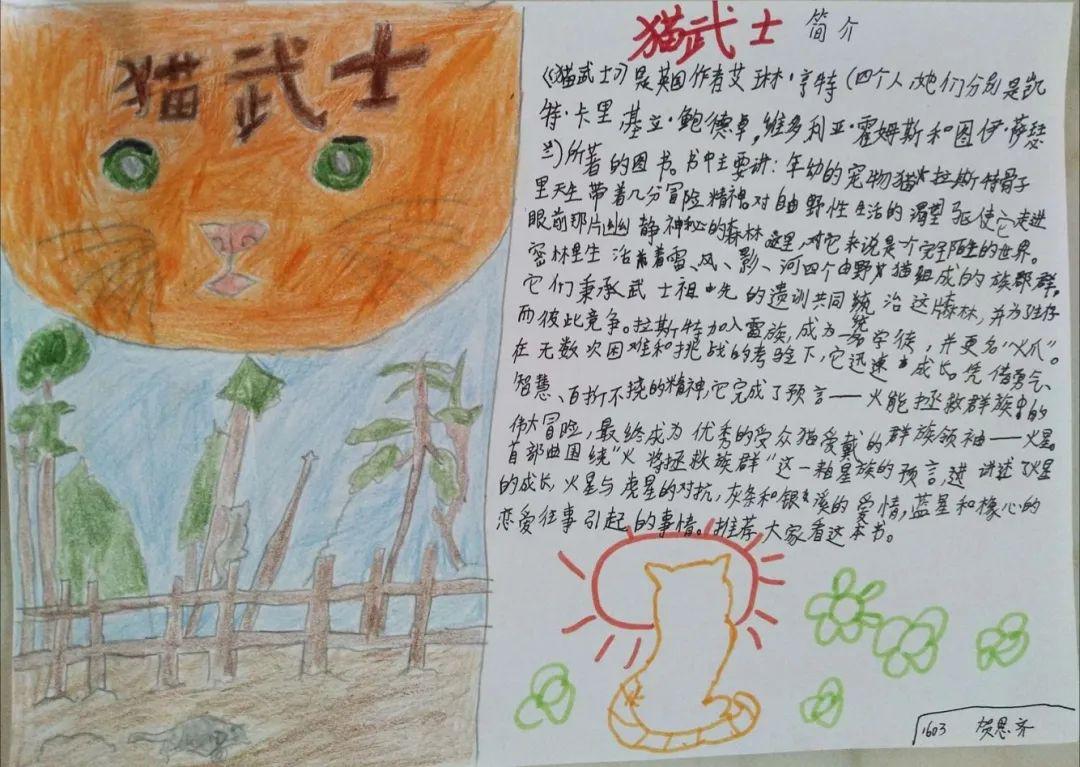 猫武士
猫武士 简介
《猫武士》是英国作者艾琳·亨特（四个人，她们分别是凯
特·卡里 基立·鲍德卓，维多利亚·霍姆斯和图伊·萨瑟
兰）所著的图书。书中主要讲：年幼的宠物猫拉斯特骨子
里天生带着几分冒险精神。对自由野性生活的渴望驱使它走进
眼前那片幽静神秘的森林 这里，对它来说是个完全陌生的世界。
密林里生活着雷、风、影、河四个由野猫组成的族群。
它们秉承武士祖先的遗训共同统治这片森林，并为生存
而彼此竞争。拉斯特加入雷族，成为一名学徒，并更名“火爪”。
在无数次困难和挑战的考验下，它迅速成长，凭借勇气、
智慧、百折不挠的精神，它完成了预言——火能拯救群族的
伟大冒险，最终成为优秀的受众猫爱戴的群族领袖——火星。
首部曲围绕“火将拯救族群”这一星族的预言，讲述了火星
的成长，火星与虎星的对抗，灰条和银溪的爱情，蓝星和橡心的
恋爱往事引起的事情。推荐大家看这本书。
1603 贺思齐